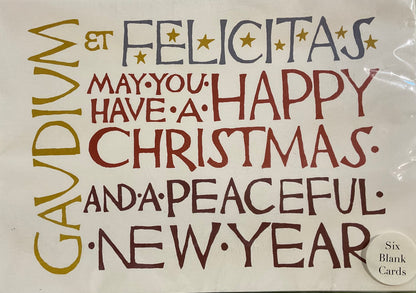 GAVDIVM
ET FELICITAS
MAY·YOU·
HAVE·A·HAPPY
CHRISTMAS·
AND·A·PEACEFUL·
·NEW·YEAR·
Six
Blank
Cards